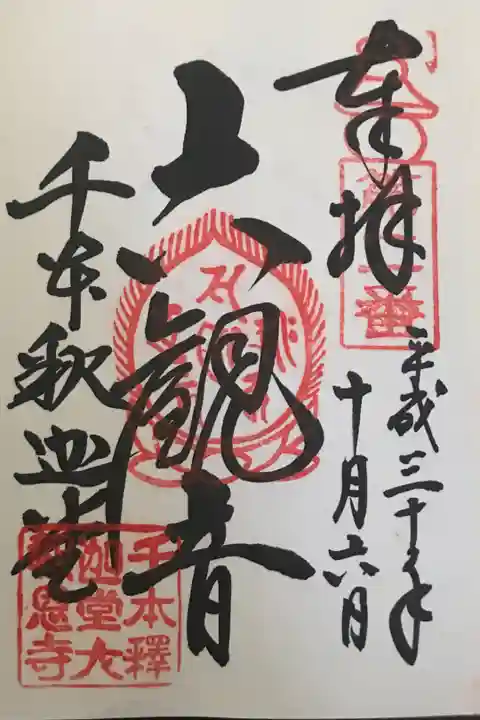 奉拝
平成三十年
十月六日
六観音
千本釈迦堂
千本釋
迦堂大
報恩寺